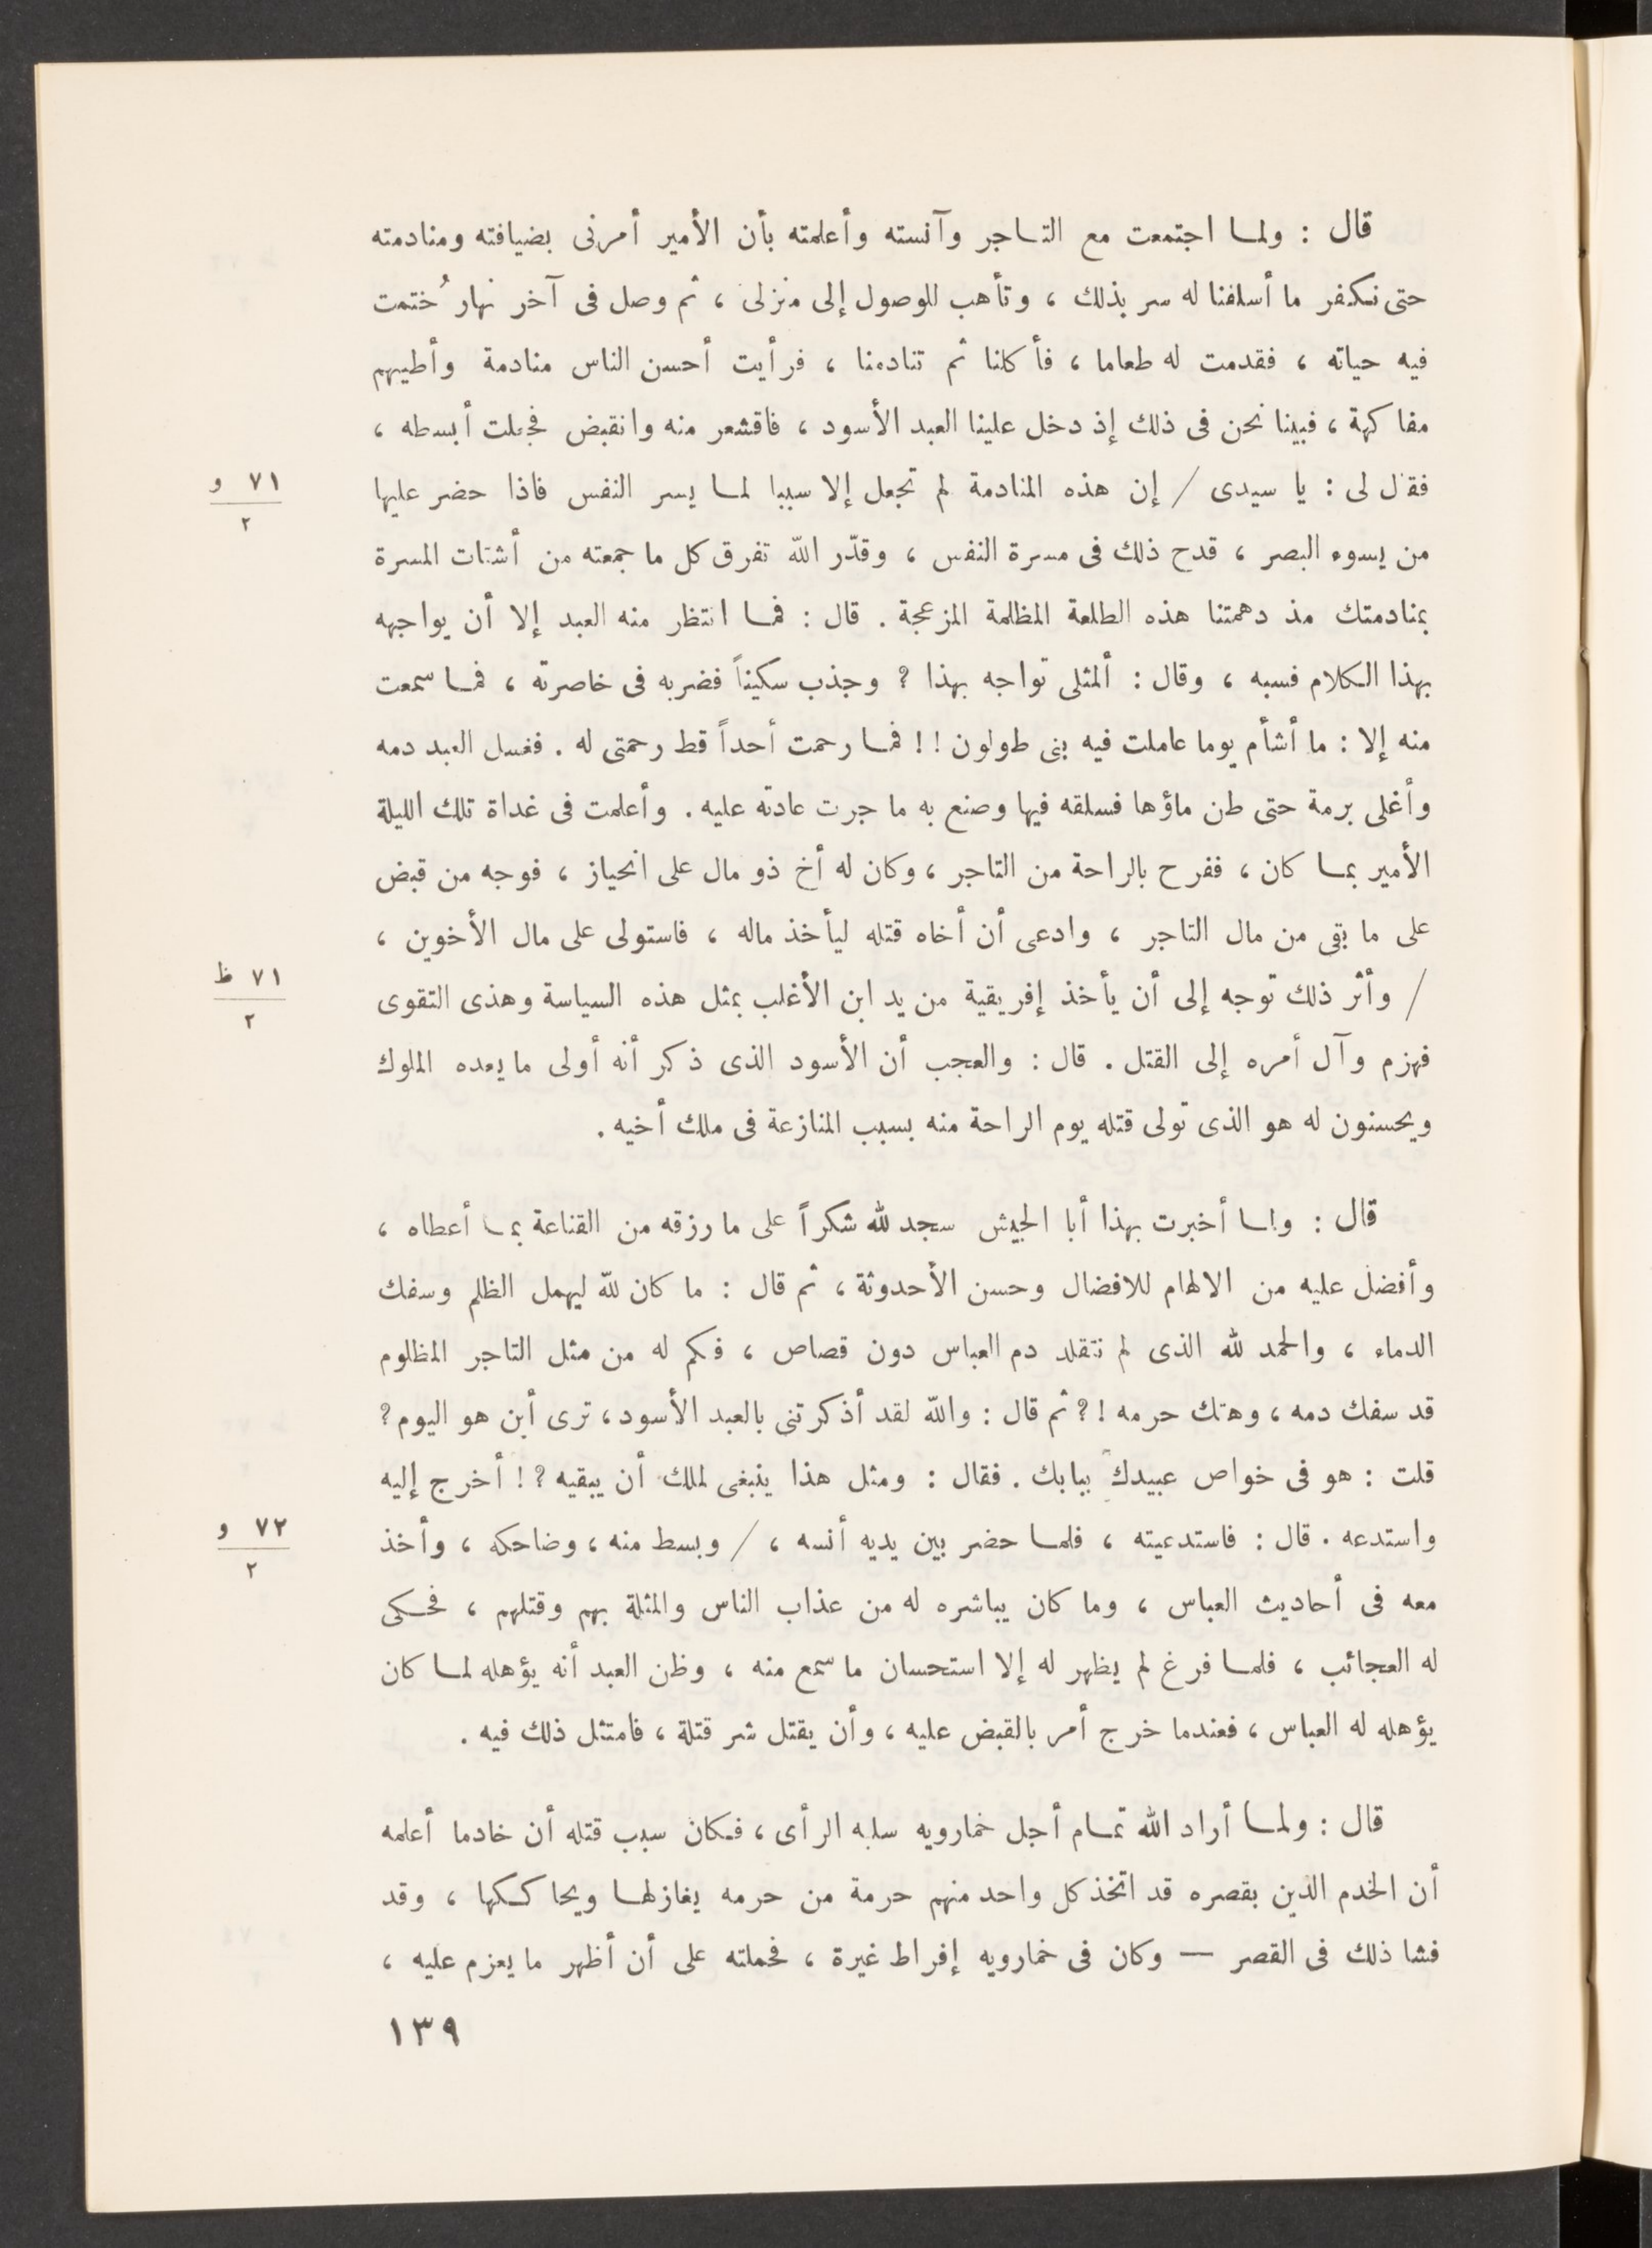 قال : ولما اجتمعت مع التاجر وآنسته وأعلمته بأن الأمير أمرنى بضيافته ومنادمته
حتى نكفر ما أسلفنا له سر بذلك ، وتأهب للوصول إلى منزلى ، ثم وصل فى آخر نهار خُتمت
فيه حياته ، فقدمت له طعاما ، فأكلنا ثم تنادمنا ، فرأيت أحسن الناس منادمة وأطيبهم
مفاكهة ، فبينا نحن فى ذلك إذ دخل علينا العبد الأسود ، فاقشعر منه وانقبض فجعلت أبسطه ،
فقال لى : يا سيدى / إن هذه المنادمة لم تجعل إلا سببا لما يسر النفس فاذا حضر عليها
٧١ و
٢
من يسوء البصر ، قدح ذلك فى مسرة النفس ، وقدّر الله تفرق كل ما جمعته من أشتات المسرة
بمنادمتك مذ دهمتنا هذه الطلعة المظلمة المزعجة . قال : فما انتظر منه العبد إلا أن يواجهه
بهذا الكلام فسبه ، وقال : ألمثلى تواجه بهذا ؟ وجذب سكيناً فضربه فى خاصرته ، فما سمعت
منه إلا : ما أشأم يوما عاملت فيه بنى طولون ! ! فما رحمت أحداً قط رحمتى له . فغسل العبد دمه
وأغلى برمة حتى طن ماؤها فسلقه فيها وصنع به ما جرت عادته عليه . وأعلمت فى غداة تلك الليلة
الأمير بما كان ، ففرح بالراحة من التاجر ، وكان له أخ ذو مال على انحياز ، فوجه من قبض
على ما بقى من مال التاجر ، وادعى أن أخاه قتله ليأخذ ماله ، فاستولى على مال الأخوين ،
/ وأثر ذلك توجه إلى أن يأخذ إفريقية من يد ابن الأغلب بمثل هذه السياسة وهذى التقوى
٧١ ظ
٢
فهزم وآل أمره إلى القتل . قال : والعجب أن الأسود الذى ذكر أنه أولى ما يعده الملوك
ويحسنون له هو الذى تولى قتله يوم الراحة منه بسبب المنازعة فى ملك أخيه .
قال : ولما أخبرت بهذا أبا الجيش سجد لله شكراً على ما رزقه من القناعة بما أعطاه ،
وأفضل عليه من الالهام للافضال وحسن الأحدوثة ، ثم قال : ما كان لله ليهمل الظلم وسفك
الدماء ، والحمد لله الذى لم نتقلد دم العباس دون قصاص ، فكم له من مثل التاجر المظلوم
قد سفك دمه ، وهتك حرمه ! ؟ ثم قال : والله لقد أذكرتنى بالعبد الأسود ، ترى أين هو اليوم ؟
قلت : هو فى خواص عبيدك ببابك . فقال : ومثل هذا ينبغى لملك أن يبقيه ؟ ! أخرج إليه
واستدعه . قال : فاستدعيته ، فلما حضر بين يديه أنسه ، / وبسط منه ، وضاحكه ، وأخذ
٧٢ و
٢
معه فى أحاديث العباس ، وما كان يباشره له من عذاب الناس والمثلة بهم وقتلهم ، فحكى
له العجائب ، فلما فرغ لم يظهر له إلا استحسان ما سمع منه ، وظن العبد أنه يؤهله لما كان
يؤهله له العباس ، فعندما خرج أمر بالقبض عليه ، وأن يقتل شر قتلة ، فامتثل ذلك فيه .
قال : ولما أراد الله تمام أجل خمارويه سلبه الرأى ، فكان سبب قتله أن خادما أعلمه
أن الخدم الذين بقصره قد اتخذ كل واحد منهم حرمة من حرمه يغازلها ويحاككها ، وقد
فشا ذلك فى القصر — وكان فى خمارويه إفراط غيرة ، فحملته على أن أظهر ما يعزم عليه ،
١٣٩